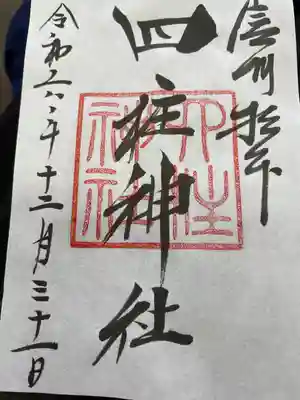 信州松本
四柱神社
四柱神社
令和六年十二月三十一日